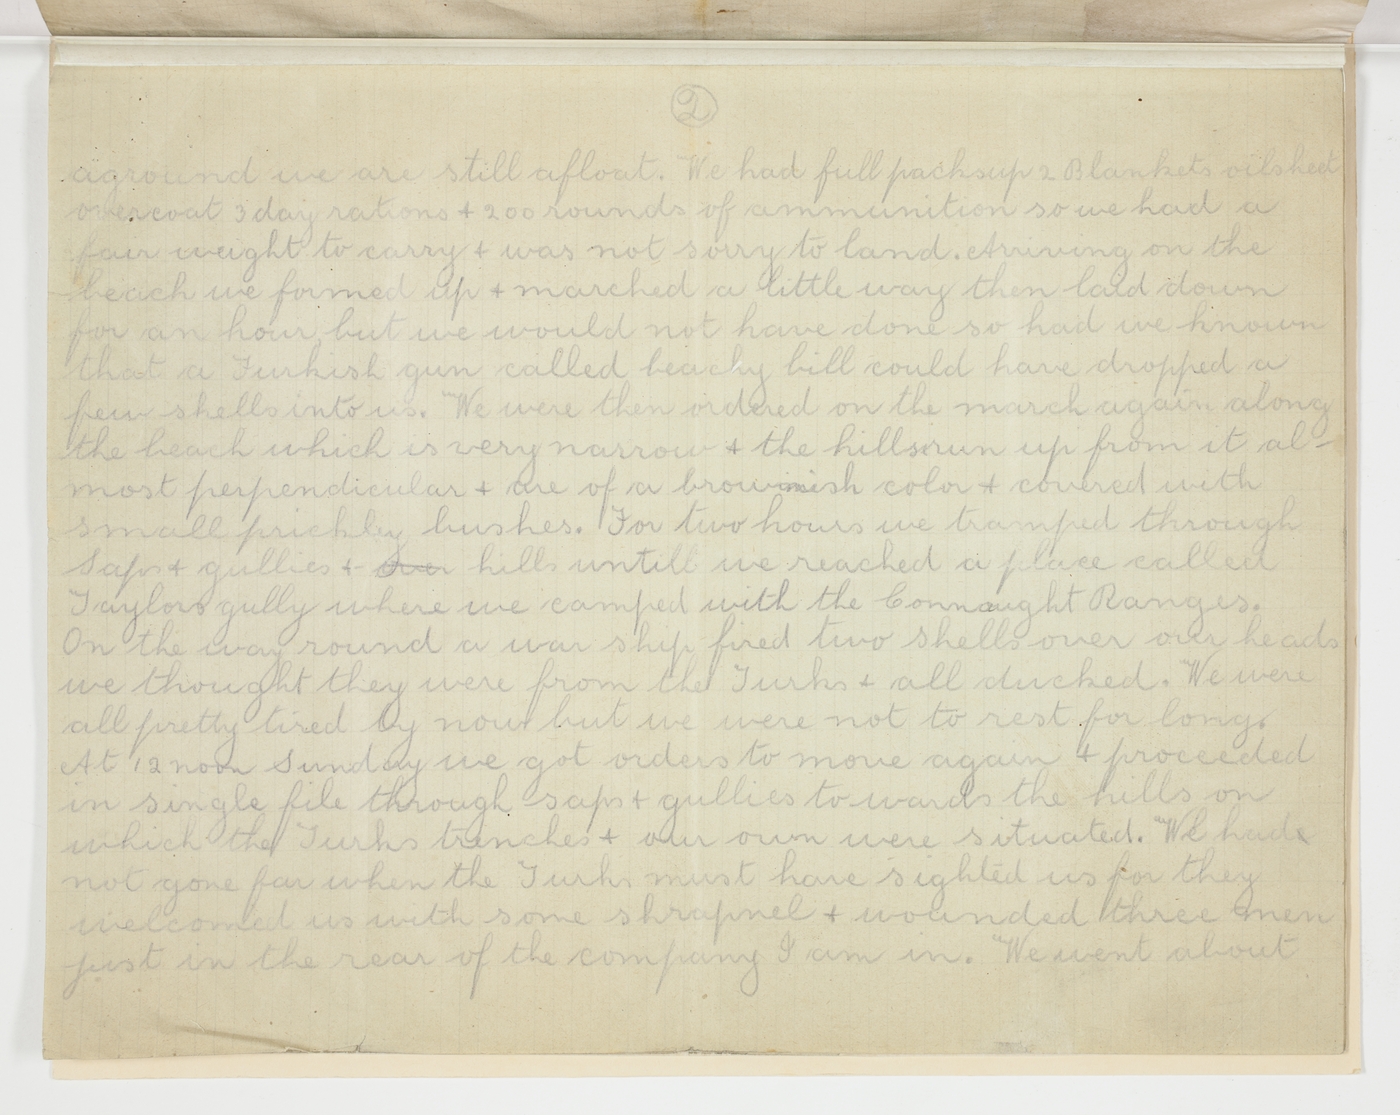 2
aground we are still afloat. We had full packs up 2 Blankets oilsheet
overcoat 3 day rations + 200 rounds of ammunition so we had a
fair weight to carry + was not sorry to land. Arriving on the
beach we formed up + marched a little way then laid down
for an hour but we would not have done so had we known
that a Turkish gun called beachy bill could have dropped a
few shells into us. We were then ordered on the march again along
the beach which is very narrow + the hills run up from it al-
most perpendicular + are of a brownish color + covered with
small prickly bushes. For two hours we tramped through
Saps + gullies + over hills untill we reached a place called
Taylors gully where we camped with the Connaught Ranges.
On the way round a war ship fired two shells over our heads
we thought they were from the Turks + all ducked. We were
all pretty tired by now but we were not to rest for long.
At 12 noon Sunday we got orders to move again + proceeded
in single file through saps + gullies towards the hills on
which the Turks trenches + our own were situated. We had
not gone far when the Turks must have sighted us for they
welcomed us with some shrapnel + wounded three men
just in the rear of the company I am in. We went about